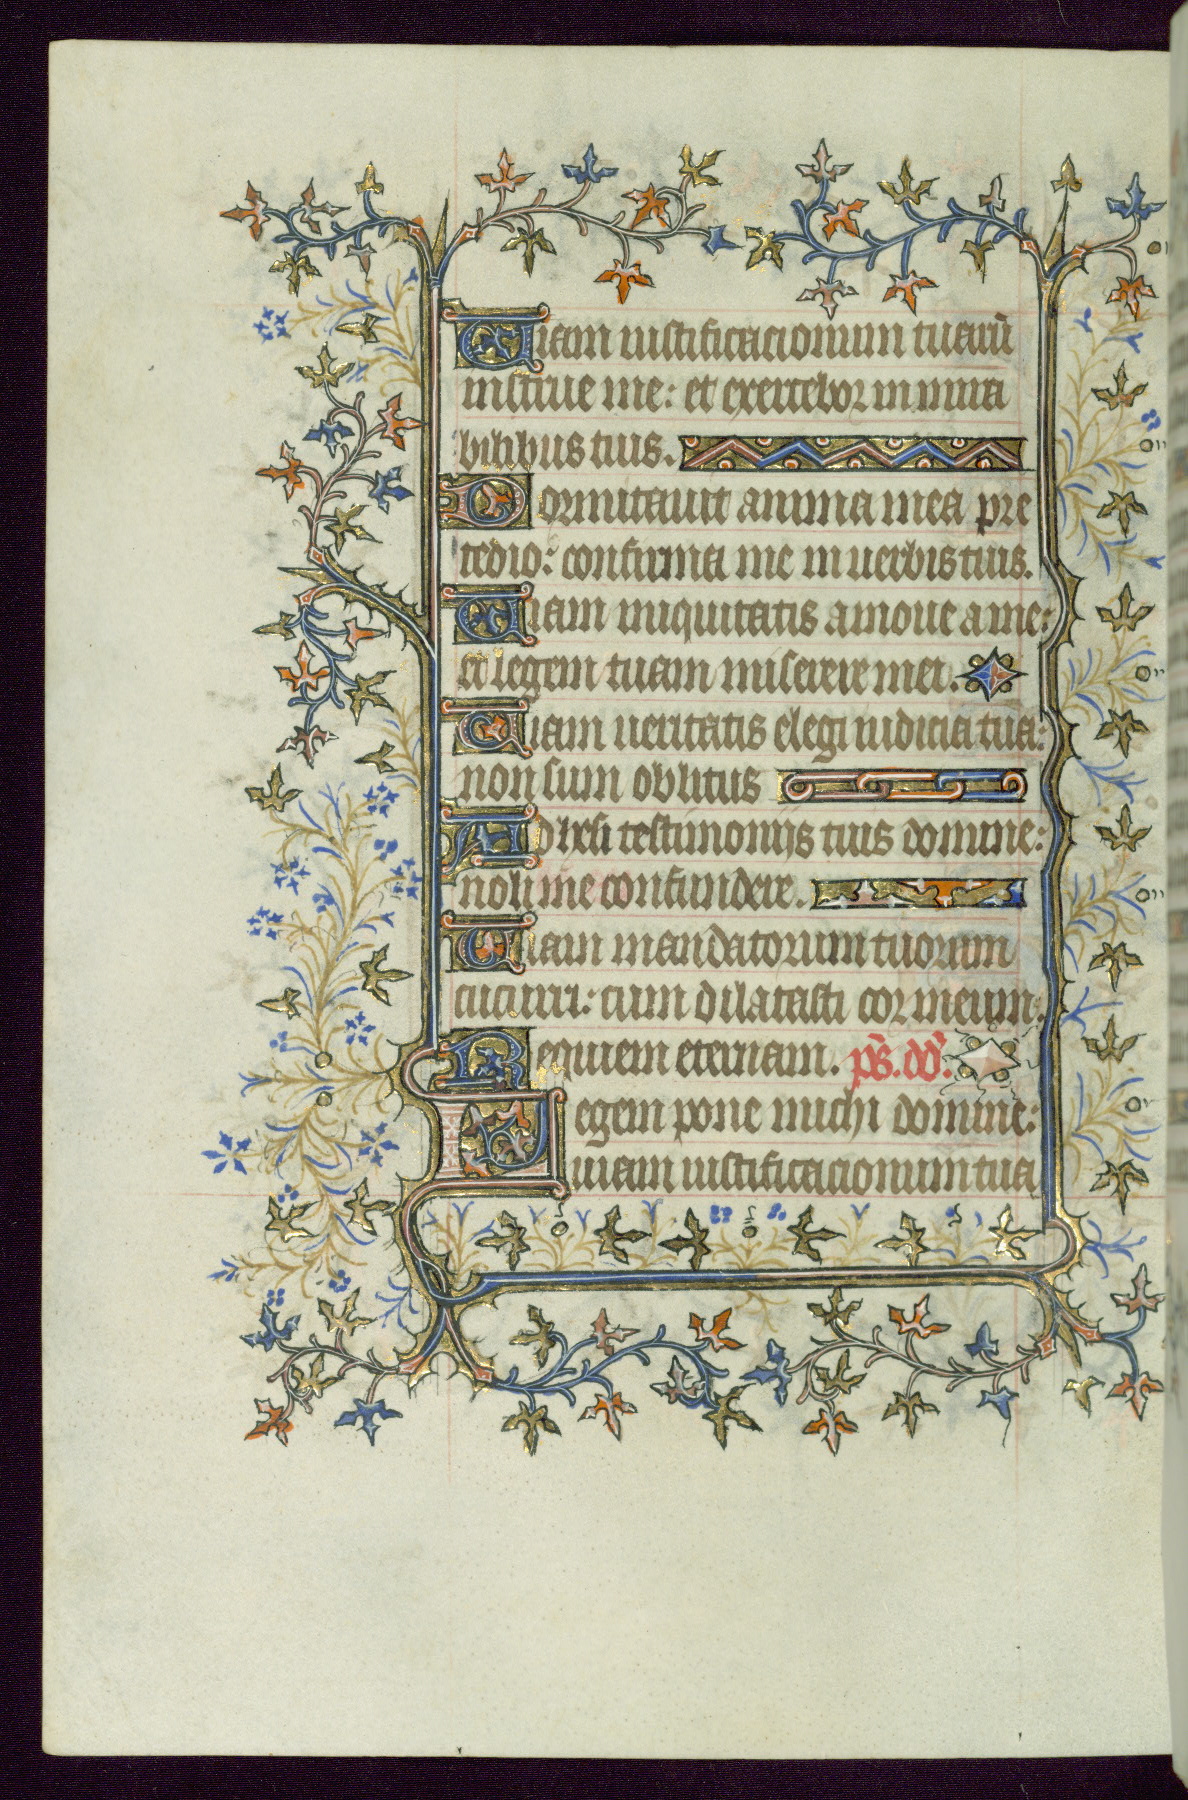 Uiam iustificacionum tuarū
instrue me: et exercebor in mira
bilibus tuis.
Dormitauit anima mea pre
tedio: confirma me in uerbis tuis.
Uiam iniquitatis amoue a me:
et legem tuam miserere mei.
Uiam ueritatis elegi iudicia tua:
non sum oblitus
Adhesi testimonijs tuis domine:
noli me confundere.
Uiam mandatorum tuorum
cucurri: cum dilatasti cor meum:
Requiem eternam. ps̄. dd̄.
Legem pone michi domine:
uiam iustificacionum tua